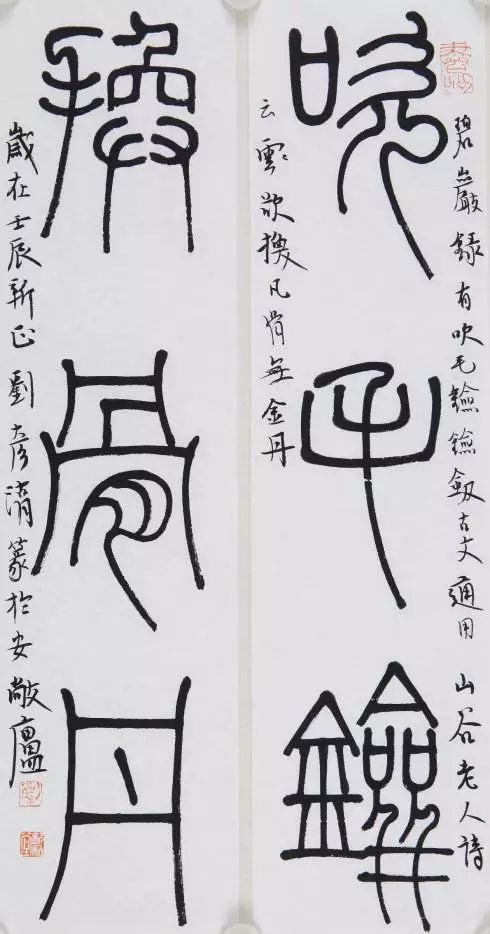 吹毛鐱
碧巖録有吹毛鐱鐱劔古文通用 山谷老人詩
云欲換凡骨無金丹
換骨丹
歲在壬辰新正劉彥湖篆於安廬